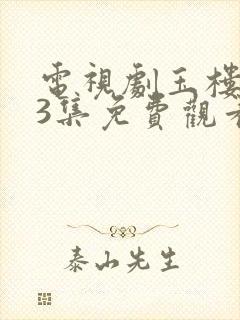 電視劇玉樓
3集免費觀看
泰山先生